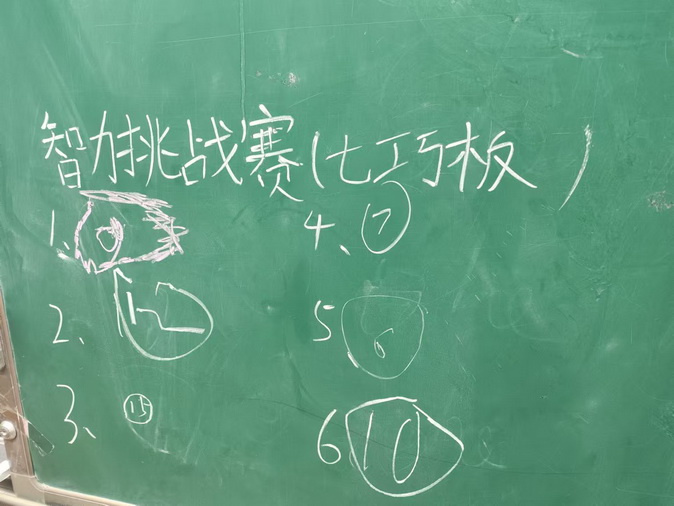 智力挑战赛(七巧板)
1、
4、⑦
2、⑫
5 ⑥
3、⑮
6、⑩